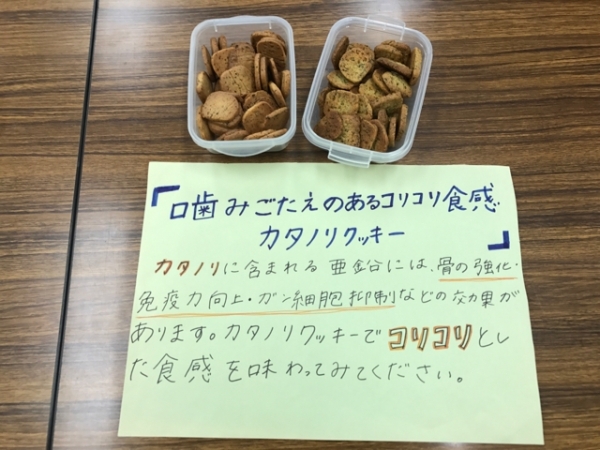 「口歯みごたえのあるコリコリ食感
カタノリクッキー」
カタノリに含まれる亜鉛には、骨の強化・
免疫力向上・ガン細胞抑制などの効果が
あります。カタノリクッキーでコリコリとし
た食感を味わってみてください。